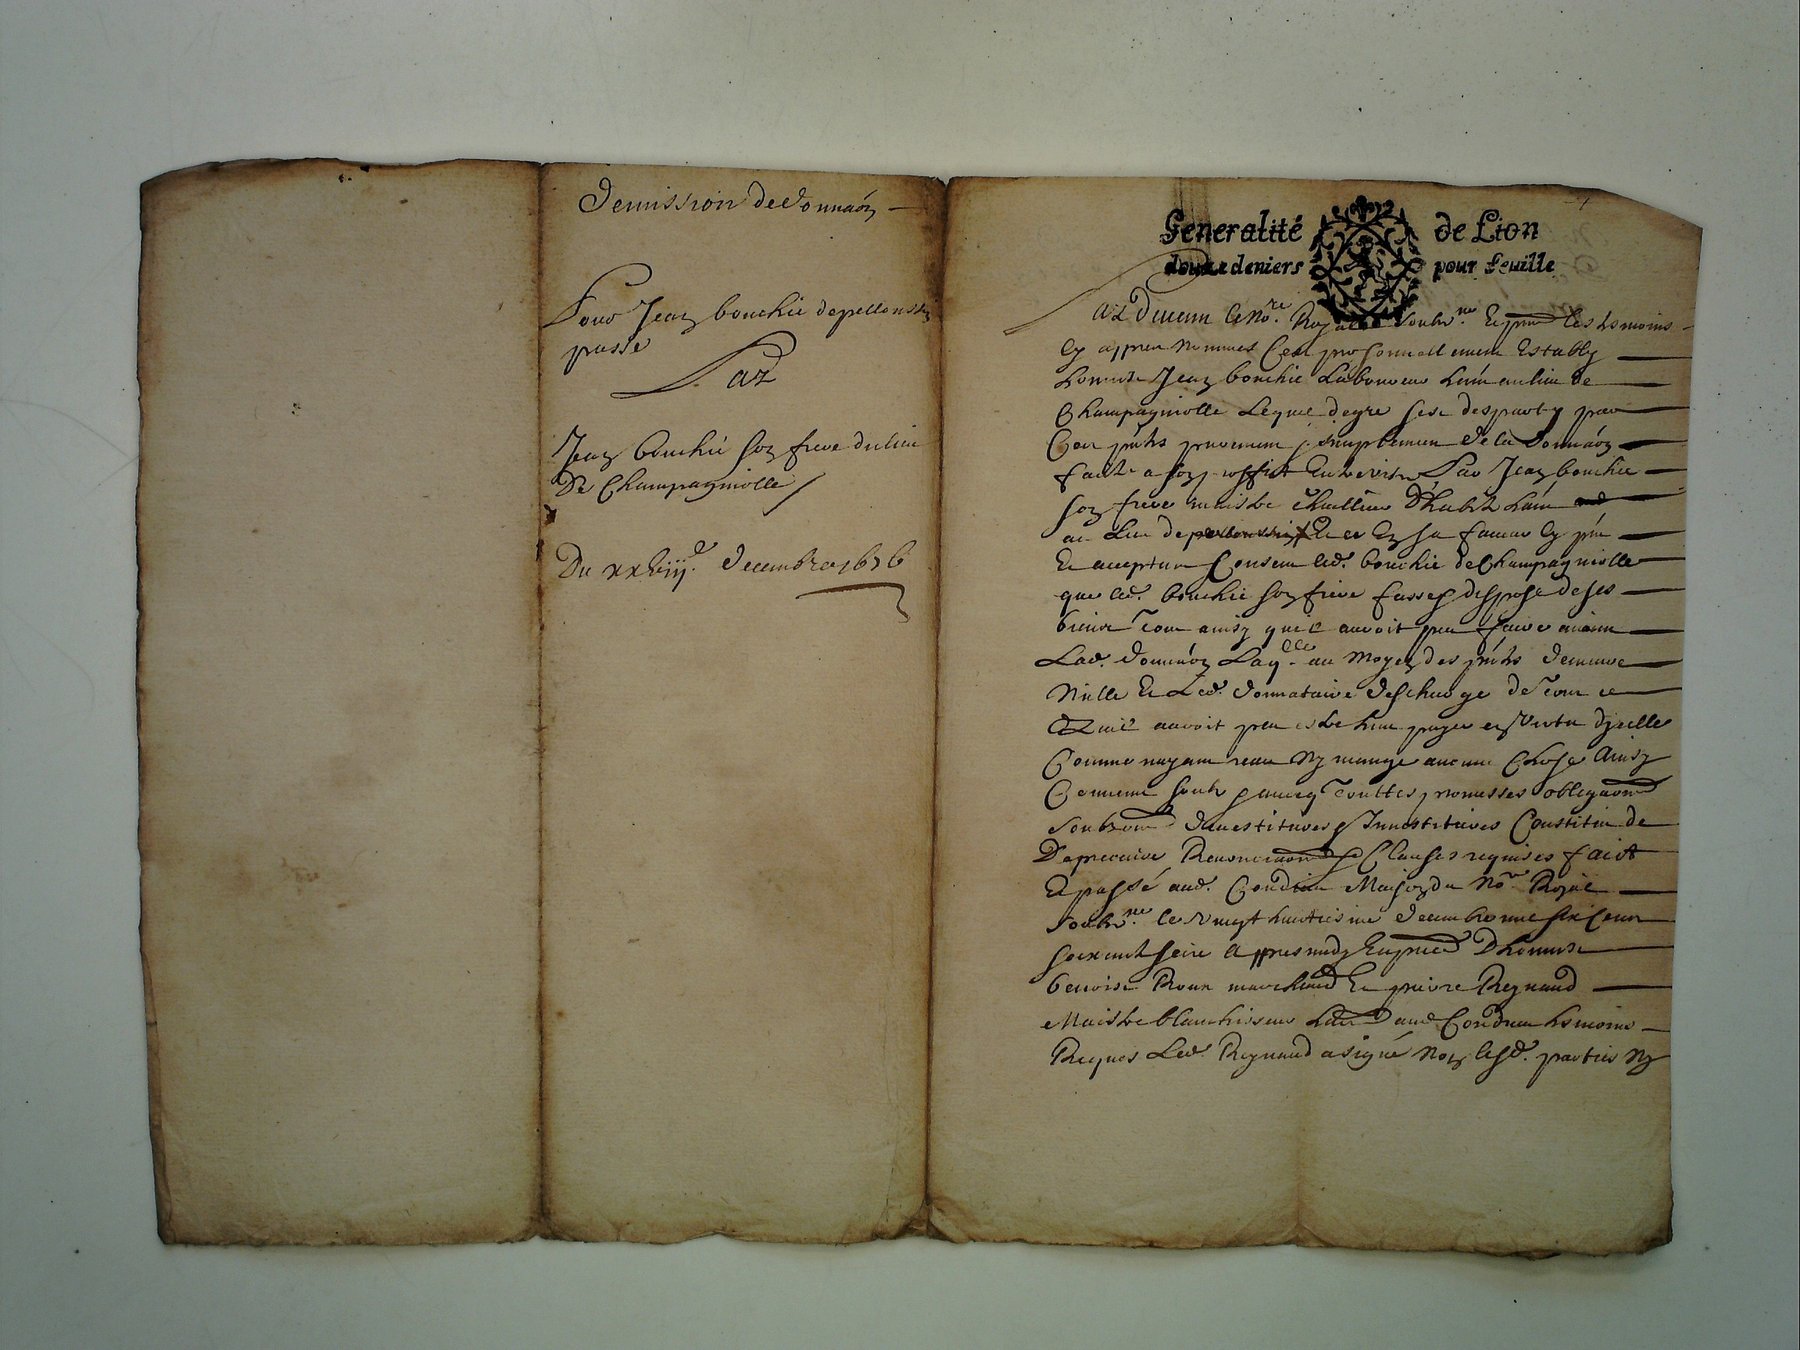 Demission de donnaôn
Pour Jean bouchié depellonssin
passé
Par
Jean bouchié son frere du lieu
De Champagniolle
Du xxviij.e decembre 1676
Generalité de Lion
douze deniers pour feuille
Par Devant le No.re Royal soubz.ne Et pnt les tesmoins
Cy appres nommés C'est personnellement Estably
honneste Jean bouchié Laboureur hant au lieu de
Champagniolle Lequel de gré s'est desparty par
Ces pntes purement & simplement de la donnaôn
faicte a son proffict Entrevifs Par Jean bouchié
son frere maistre D'habit hant
au Lieu de En sa faveur Cy pnt
Et acceptant Consent led. bouchié de Champagniolle
que led. bouchié son frere fasse & dispose de ses
biens tout ainsy quil auroit peu faire avant
Lad. donnaôn Laq.lle au moyen des pntes demeure
Nulle Et Led. donnataire deschargé de tout ce
Quil auroit peu estre tenu payer en Vertu d'jcelle
Comme nayant receu Ny mangé aucune Chose Ainsy
Comme & avecq touttes promesses obligaons
soubzons devestitures & Jnvestitures Constitu de
Precaire Renonciaons & Clauses requises faict
Et passé aud. Condrieu Maison du No.re Royal
soubz.ne le vingt huictiesme decembre mil six Cent
septante seize Appres midy En pnce D'honneste
benoist Roux marchand Et pierre Reynaud
Maistre blanchisseur hant aud Condrieu tesmoins
Requis Led. Reynaud a signé Non lesd. parties Ny